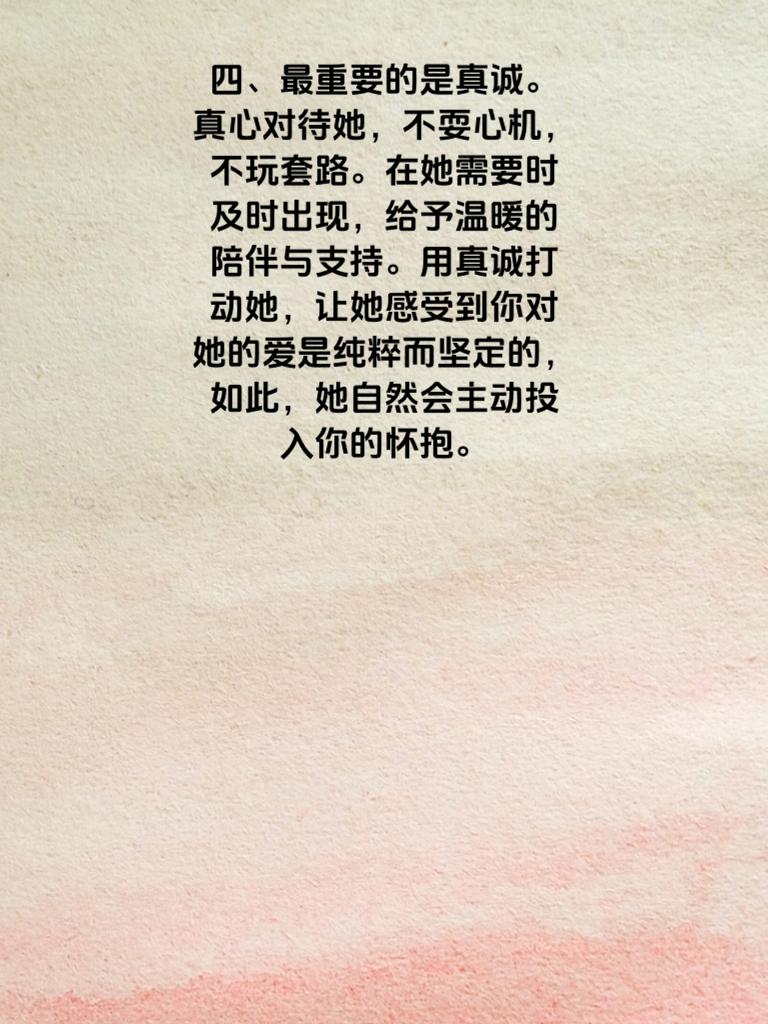 四、最重要的是真诚。
真心对待她，不耍心机，
不玩套路。在她需要时
及时出现，给予温暖的
陪伴与支持。用真诚打
动她，让她感受到你对
她的爱是纯粹而坚定的，
如此，她自然会主动投
入你的怀抱。